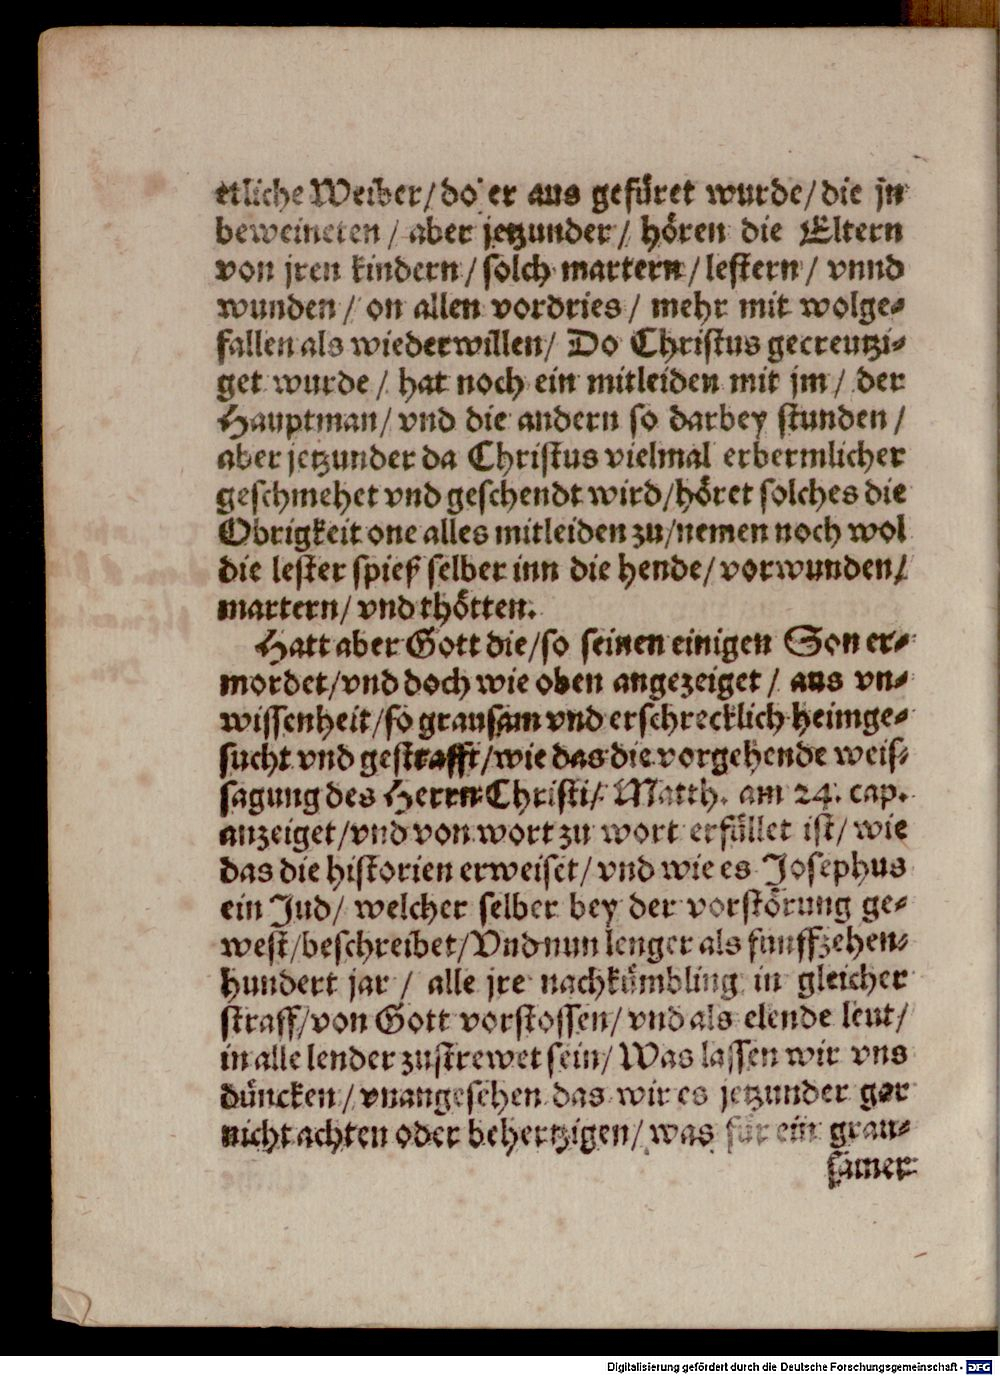 etliche Weiber/ do er aus gefüret wurde/ die jn
beweineten / aber jetzunder / hören die Eltern
von jren kindern / solch martern / lestern / vnnd
wunden / on allen vordries / mehr mit wolge-
fallen als wiederwillen/ Do Christus gecreutzi-
get wurde / hat noch ein mitleiden mit jm / der
Hauptman/ vnd die andern so darbey stunden /
aber jetzunder da Christus vielmal erbermlicher
geschmehet vnd geschendt wird/ höret solches die
Obrigkeit one alles mitleiden zu/ nemen noch wol
die lester spieß selber inn die hende/ vorwunden/
martern/ vnd thötten.
Hatt aber Gott die/ so seinen einigen Son er-
mordet/ vnd doch wie oben angezeiget / aus vn-
wissenheit/ so grausam vnd erschrecklich heimge-
sucht vnd gestrafft/ wie das die vorgehende weis-
sagung des Herrn Christi/ Matth. am 24. cap.
anzeiget/ vnd von wort zu wort erfüllet ist/ wie
das die historien erweiset/ vnd wie es Josephus
ein Jud/ welcher selber bey der vorstörung ge-
west/ beschreibet/ Vnd nun lenger als funffzehen-
hundert jar / alle jre nachkümbling in gleicher
straff/ von Gott vorstossen/ vnd als elende leut/
in alle lender zustrewet sein/ Was lassen wir vns
düncken / vnangesehen das wir es jetzunder gar
nicht achten oder behertzigen/ was für ein grau-
samer
Digitalisierung gefördert durch die Deutsche Forschungsgemeinschaft - DFG